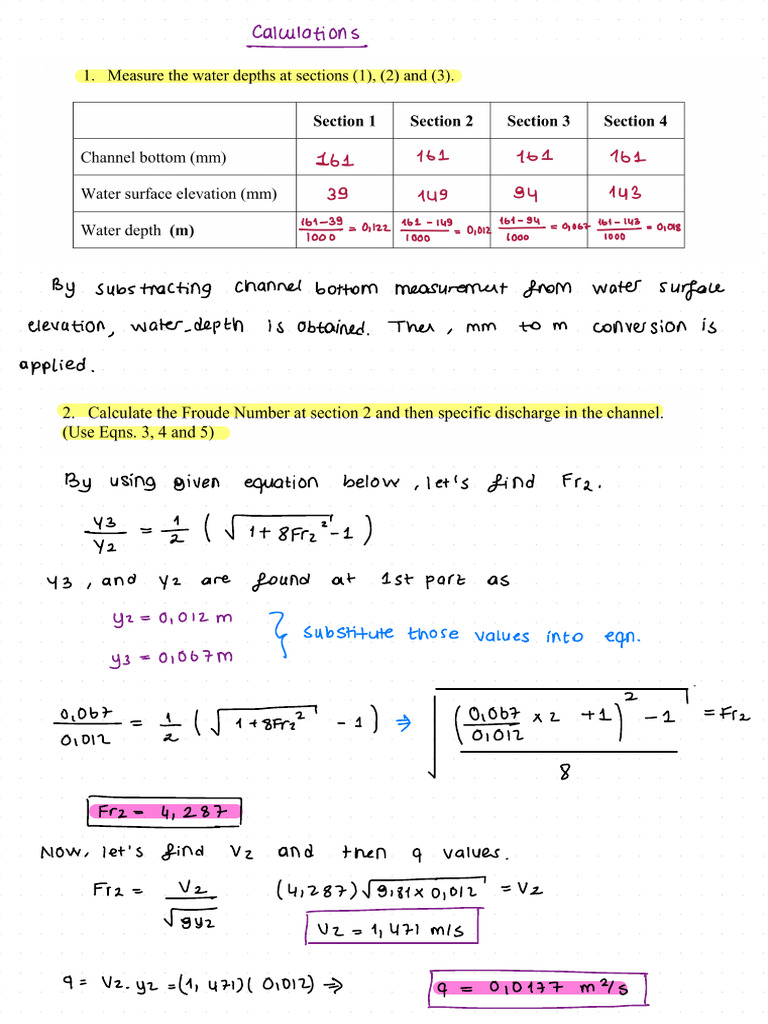 Calculations
1. Measure the water depths at sections (1), (2) and (3).
Section 1 Section 2 Section 3 Section 4
Channel bottom (mm) 161 161 161 161
Water surface elevation (mm) 39 149 94 143
Water depth (m) (161-39)/1000 = 0,122 (161-149)/1000 = 0,012 (161-94)/1000 = 0,067 (161-143)/1000 = 0,018
By substracting channel bottom measurement from water surface
elevation, water_depth is obtained. Then, mm to m conversion is
applied.
2. Calculate the Froude Number at section 2 and then specific discharge in the channel.
(Use Eqns. 3, 4 and 5)
By using given equation below, let's find Fr2.
y3/y2 = 1/2 (√(1 + 8Fr2²) - 1)
y3, and y2 are found at 1st part as
y2 = 0,012 m
} substitute those values into eqn.
y3 = 0,067m
0,067/0,012 = 1/2 (√(1+8Fr2²) - 1) ⇒ √(((0,067/0,012 x 2 + 1)² - 1)/8) = Fr2
Fr2 = 4,287
Now, let's find V2 and then q values.
Fr2 = V2/√gy2 (4,287)√(9,81x 0,012) = V2
V2 = 1,471 m/s
q = V2.y2 = (1,471)(0,012) ⇒ q = 0,0177 m²/s